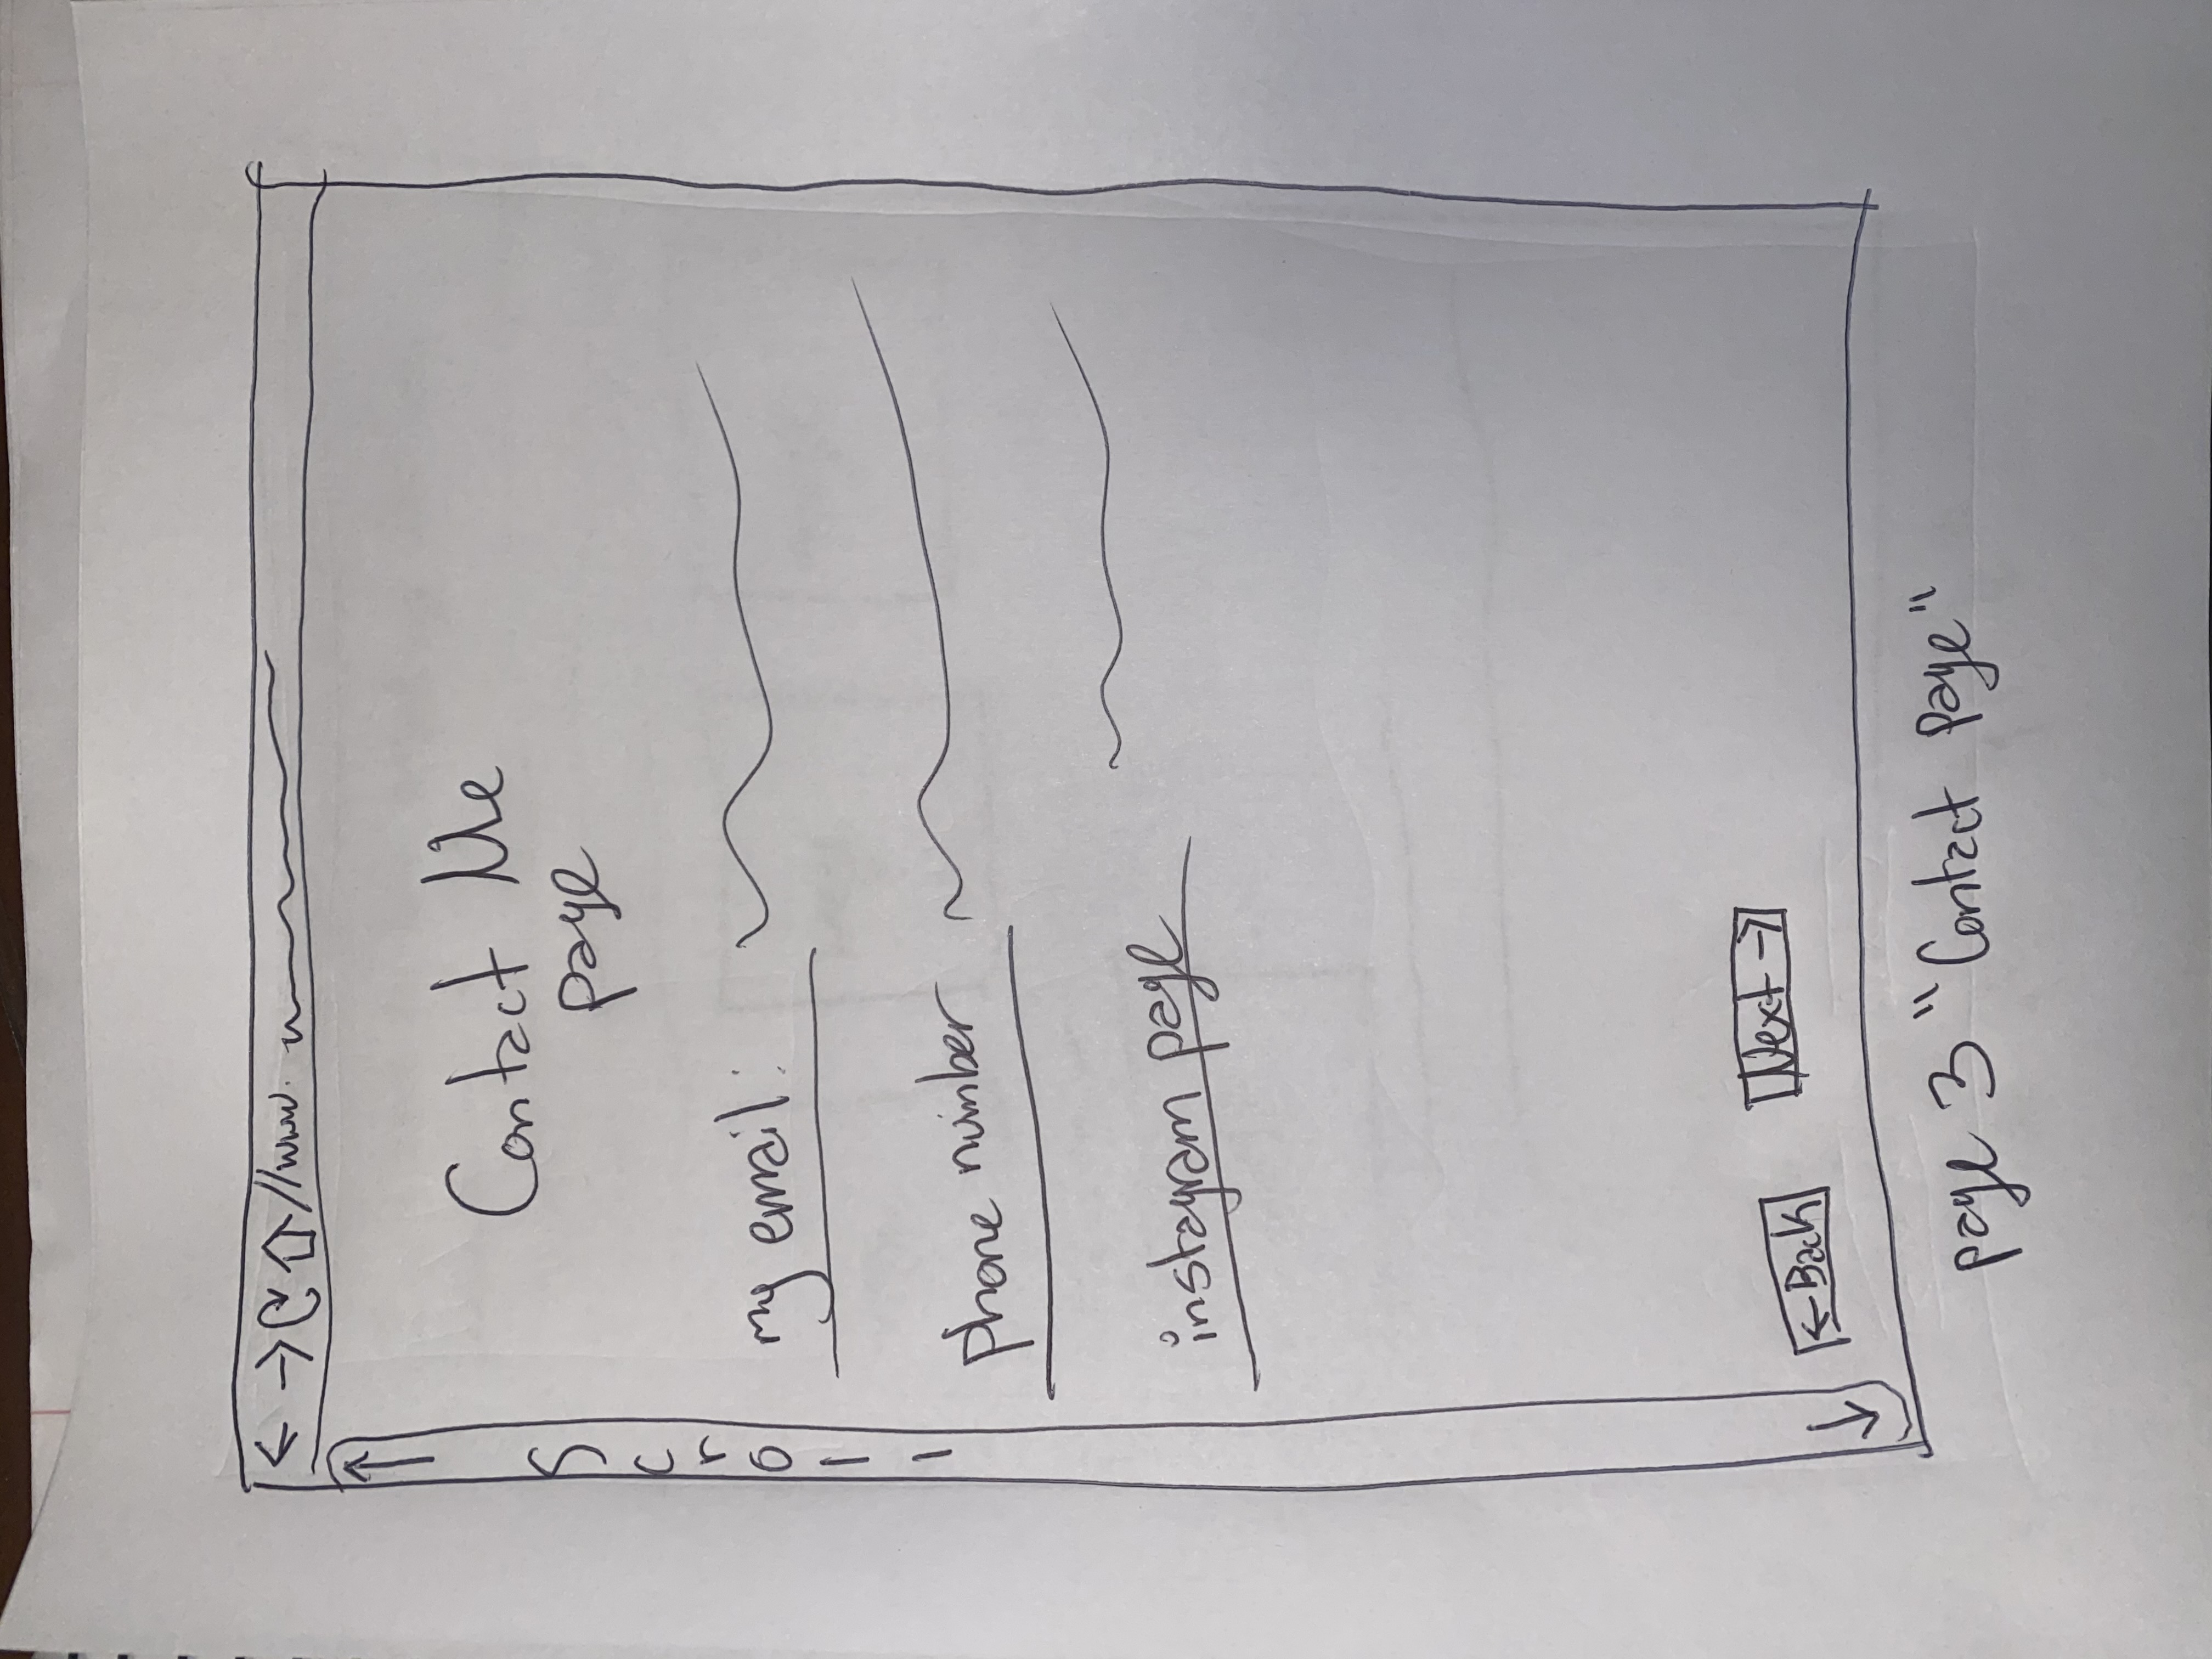 ← → //www.
Scroll
Contact Me
page
my email:
phone number
instagram page
← Back
Next →
page 3 "Contact page"